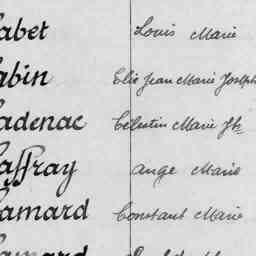 abet Louis Marie
abin Elie Jean Marie Joseph
adenac Célestin Marie Jh
affray ange Marie
amard Constant Marie
amard